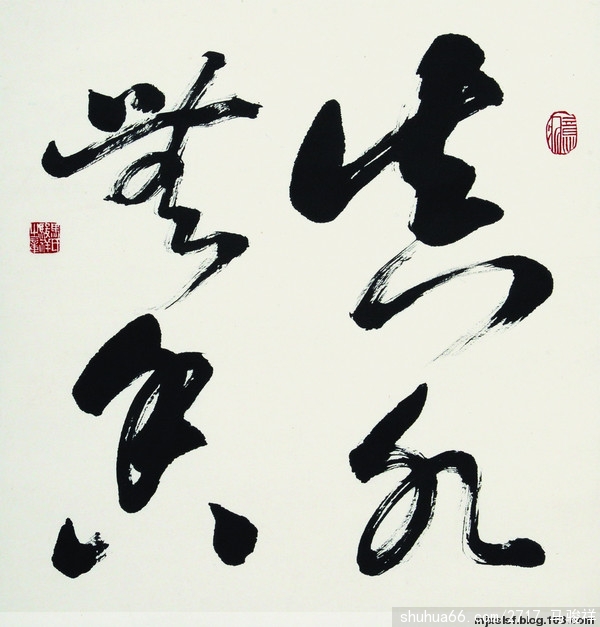 真水
無香
shuhua66.com/2717_马骏祥
mjxslsf.blog.163.com